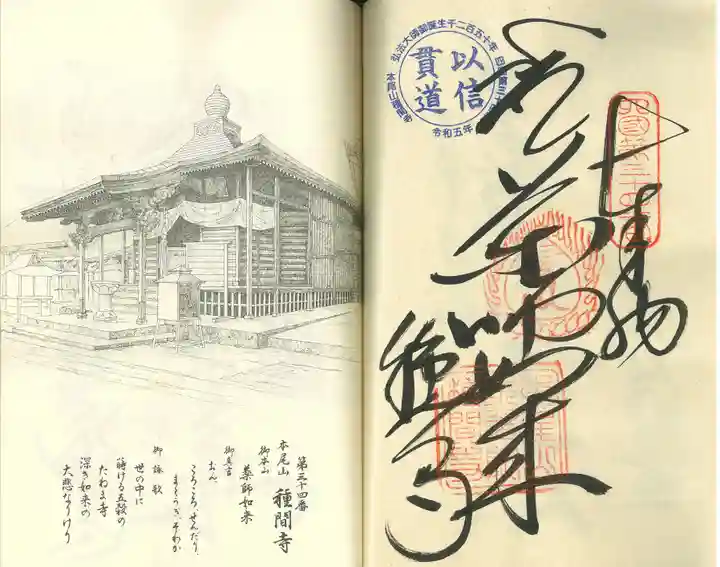 奉納
薬師如来
種間寺
弘法大師御誕生千二百五十年
以信
貫道
令和五年
本尾山種間寺
第三十四番
本尾山 種間寺
御本尊
薬師如来
御真言
おん、
ころころ、せんだり、
まとうぎ、そわか
御詠歌
世の中に
蒔ける五穀の
たねま寺
深き如来の
大悲なりけり